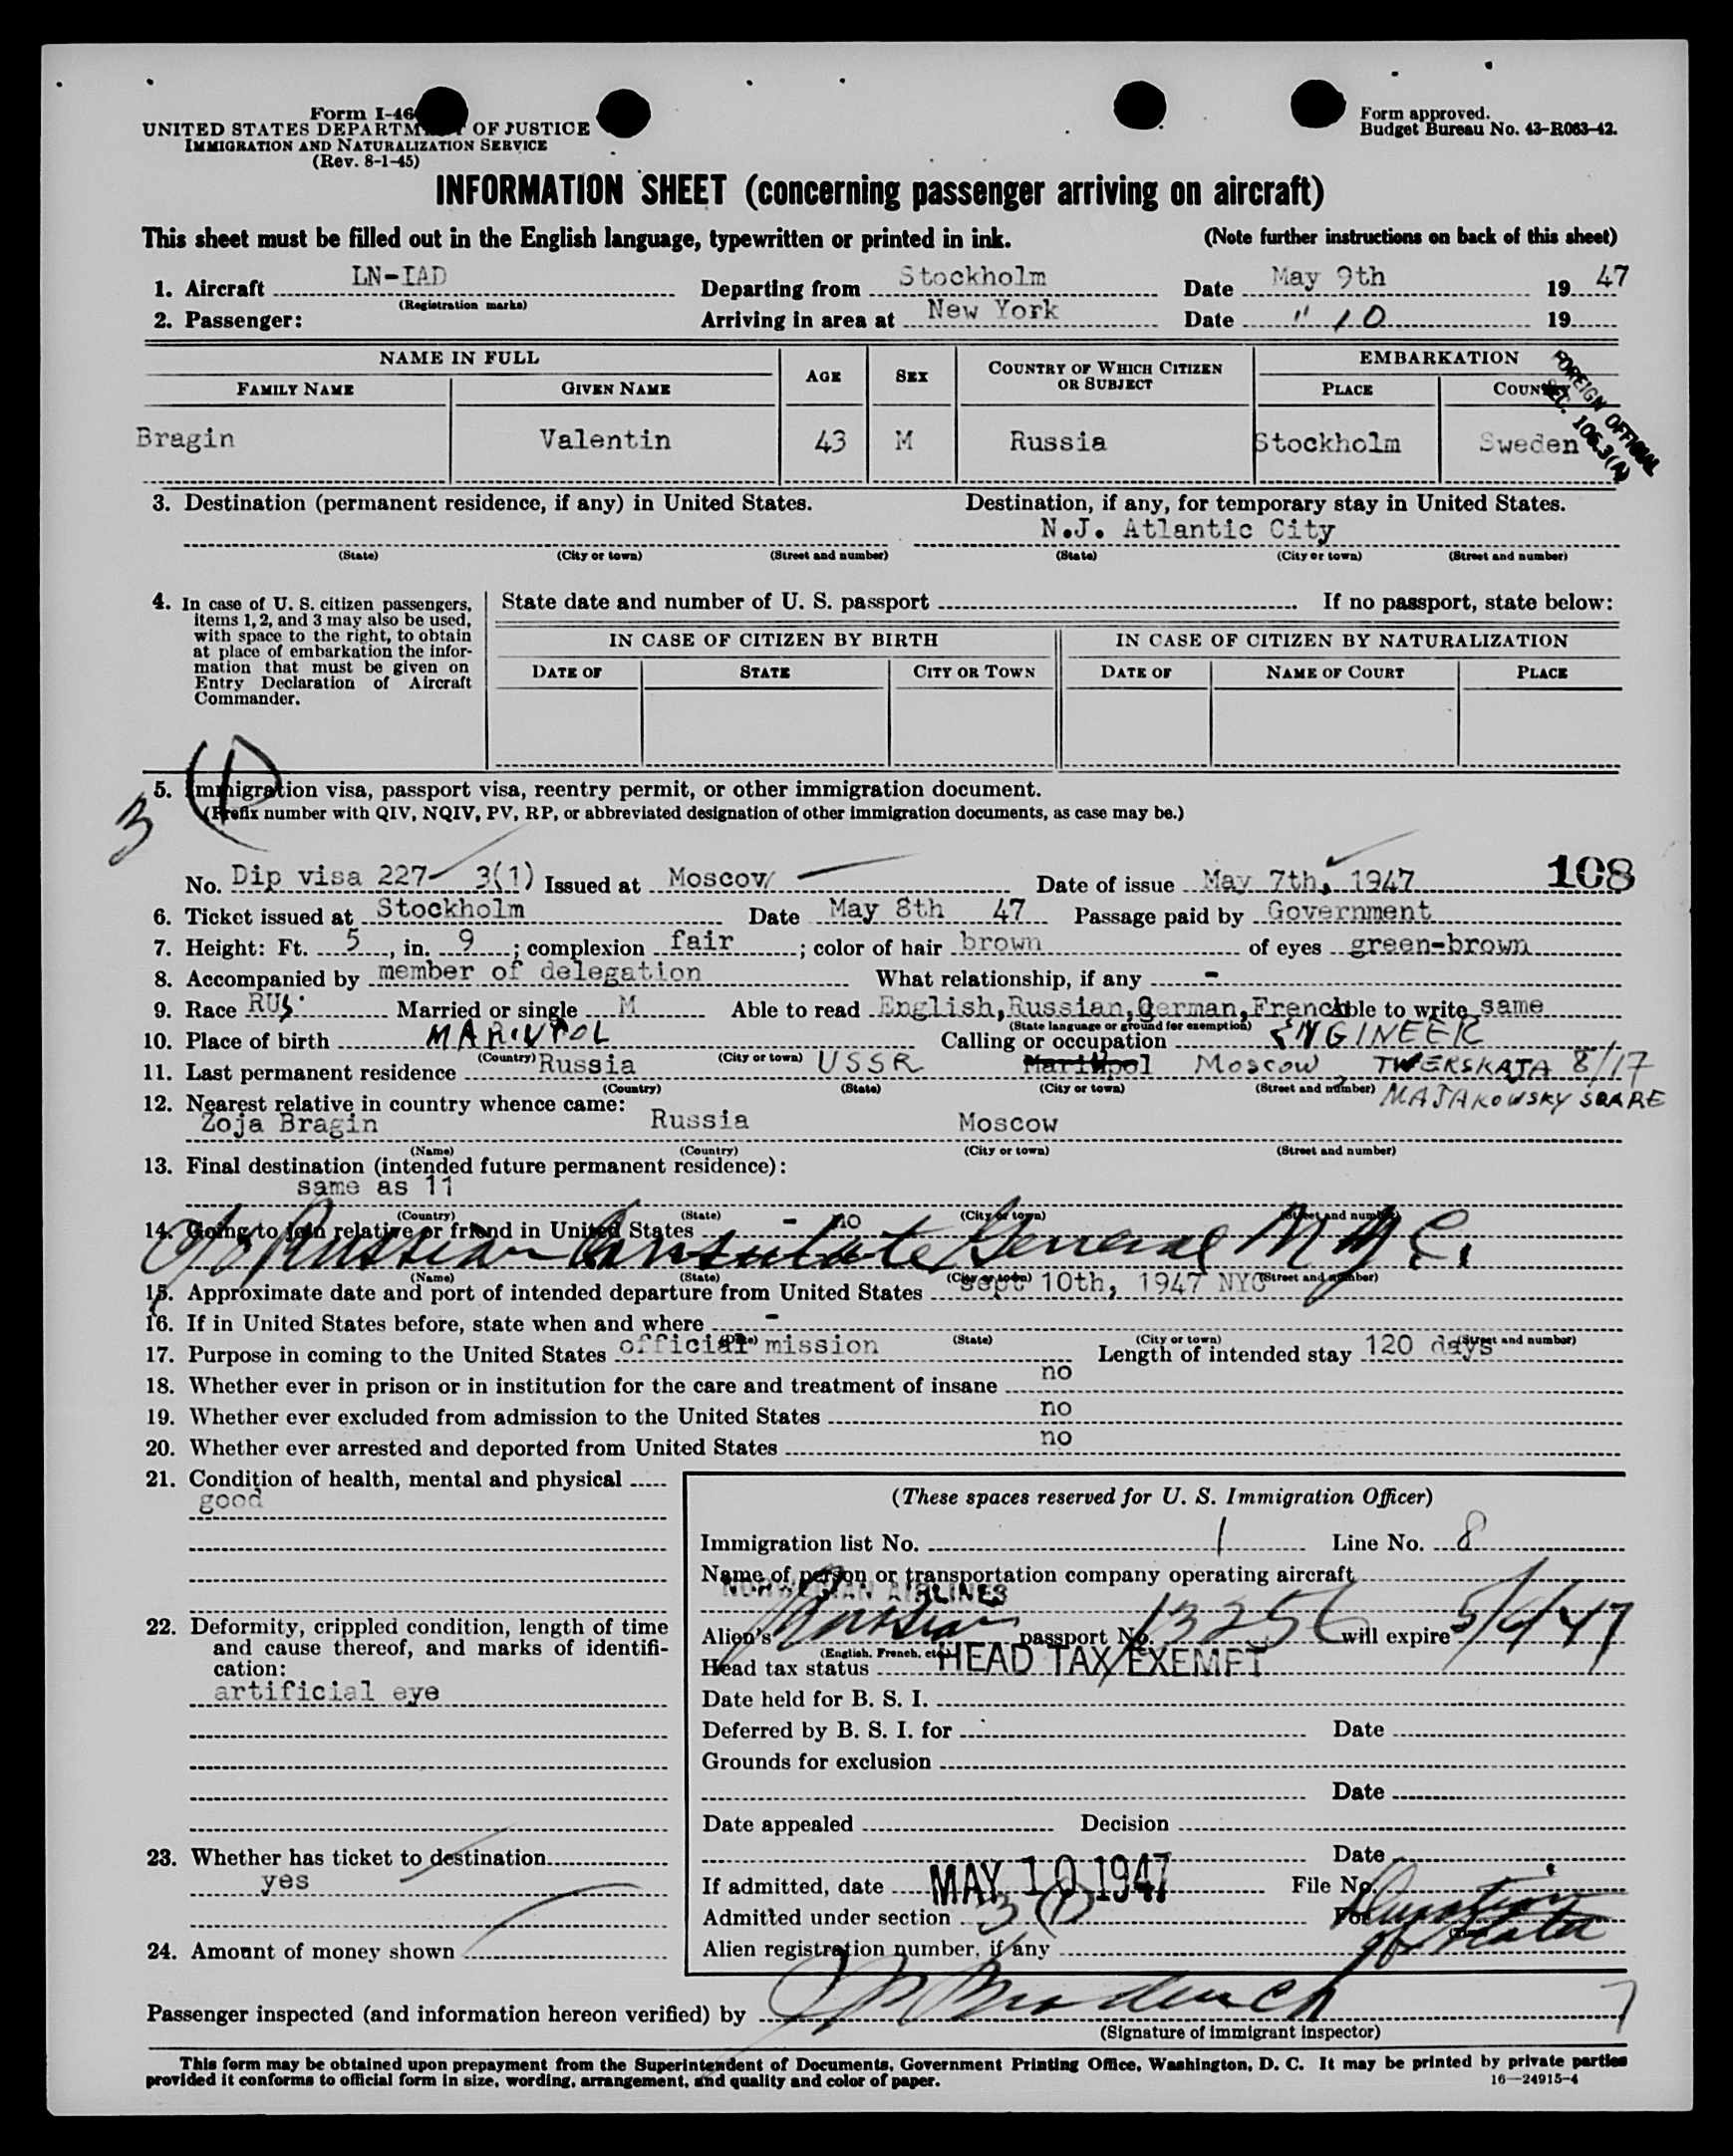 Form I-46
UNITED STATES DEPARTMENT OF JUSTICE
IMMIGRATION AND NATURALIZATION SERVICE
(Rev. 8-1-45)
Form approved.
Budget Bureau No. 43-R063-42.
INFORMATION SHEET (concerning passenger arriving on aircraft)
This sheet must be filled out in the English language, typewritten or printed in ink. (Note further instructions on back of this sheet)
1. Aircraft LN-IAD Departing from Stockholm Date May 9th 1947
(Registration marks)
2. Passenger: Arriving in area at New York Date " 10 19
NAME IN FULL AGE SEX COUNTRY OF WHICH CITIZEN OR SUBJECT EMBARKATION
FAMILY NAME GIVEN NAME PLACE COUNTRY
FOREIGN OFFICIAL
SEC. 106.3(A)
Bragin Valentin 43 M Russia Stockholm Sweden
3. Destination (permanent residence, if any) in United States. Destination, if any, for temporary stay in United States.
N.J. Atlantic City
(State) (City or town) (Street and number) (State) (City or town) (Street and number)
4. In case of U. S. citizen passengers, items 1, 2, and 3 may also be used, with space to the right, to obtain at place of embarkation the information that must be given on Entry Declaration of Aircraft Commander.
State date and number of U. S. passport If no passport, state below:
IN CASE OF CITIZEN BY BIRTH IN CASE OF CITIZEN BY NATURALIZATION
DATE OF STATE CITY OR TOWN DATE OF NAME OF COURT PLACE
3 (1)
5. Immigration visa, passport visa, reentry permit, or other immigration document.
(Prefix number with QIV, NQIV, PV, RP, or abbreviated designation of other immigration documents, as case may be.)
108
No. Dip visa 227 3(1) Issued at Moscow Date of issue May 7th, 1947
6. Ticket issued at Stockholm Date May 8th 47 Passage paid by Government
7. Height: Ft. 5, in. 9; complexion fair; color of hair brown of eyes green-brown
8. Accompanied by member of delegation What relationship, if any -
9. Race RUS Married or single M Able to read English, Russian, German, French Able to write same
(State language or ground for exemption)
10. Place of birth MARIUPOL Calling or occupation ENGINEER
(Country) (City or town)
11. Last permanent residence Russia USSR Mariupol Moscow TWERSKAJA 8/17
(Country) (State) (City or town) (Street and number) MAJAKOWSKY SQARE
12. Nearest relative in country whence came:
Zoja Bragin Russia Moscow
(Name) (Country) (City or town) (Street and number)
13. Final destination (intended future permanent residence):
same as 11
(Country) (State) (City or town) (Street and number)
14. Going to join relative or friend in United States - no
c/o Russian Consulate General N.Y.C.
(Name) (State) (City or town) (Street and number)
15. Approximate date and port of intended departure from United States sept 10th, 1947 NYC
16. If in United States before, state when and where -
(Date) (State) (City or town) (Street and number)
17. Purpose in coming to the United States official mission Length of intended stay 120 days
18. Whether ever in prison or in institution for the care and treatment of insane no
19. Whether ever excluded from admission to the United States no
20. Whether ever arrested and deported from United States no
21. Condition of health, mental and physical
good
22. Deformity, crippled condition, length of time and cause thereof, and marks of identification:
artificial eye
23. Whether has ticket to destination
yes
24. Amount of money shown
(These spaces reserved for U. S. Immigration Officer)
Immigration list No. 1 Line No. 8
Name of person or transportation company operating aircraft
NORWEGIAN AIRLINES
Alien's Russian passport No. 13256 will expire 5/4/47
(English, French, etc.)
Head tax status HEAD TAX EXEMPT
Date held for B. S. I.
Deferred by B. S. I. for Date
Grounds for exclusion
Date
Date appealed Decision
Date
If admitted, date MAY 10 1947 File No.
Admitted under section 3 (1) For Duration of Status
Alien registration number, if any
Passenger inspected (and information hereon verified) by
(Signature of immigrant inspector)
This form may be obtained upon prepayment from the Superintendent of Documents, Government Printing Office, Washington, D. C. It may be printed by private parties
provided it conforms to official form in size, wording, arrangement, and quality and color of paper.
16—24915-4